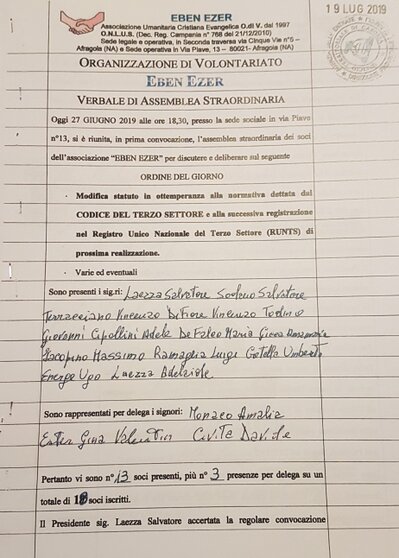 EBEN EZER
Associazione Umanitaria Cristiana Evangelica O.dI V. dal 1997
O.N.L.U.S. (Dec. Reg. Campania n° 768 del 21/12/2010)
Sede legale e operativa, in Seconda traversa via Cinque Vie n°5 –
Afragola (NA) e Sede operativa in Via Piave, 13 – 80021- Afragola (NA)
19 LUG 2019
ORGANIZZAZIONE DI VOLONTARIATO
EBEN EZER
VERBALE DI ASSEMBLEA STRAORDINARIA
Oggi 27 GIUGNO 2019 alle ore 18,30, presso la sede sociale in via Piave
n°13, si è riunita, in prima convocazione, l'assemblea straordinaria dei soci
dell'associazione "EBEN EZER" per discutere e deliberare sul seguente
ORDINE DEL GIORNO
- Modifica statuto in ottemperanza alla normativa dettata dal
CODICE DEL TERZO SETTORE e alla successiva registrazione
nel Registro Unico Nazionale del Terzo Settore (RUNTS) di
prossima realizzazione.
- Varie ed eventuali
Sono presenti i sig.ri: Laezza Salvatore Sodano Salvatore
Terracciano Vincenzo De Fiore Vincenzo Todino
Giovanni Cipollini Adele De Falco Maria Giova
Iacopino Massimo Ramaglia Luigi Catella Umberto
Energe Ugo Laezza Adelaide
Sono rappresentati per delega i signori: Monaco Amalia
Ester Gina Valentin Civita Davide
Pertanto vi sono n° 13 soci presenti, più n° 3 presenze per delega su un
totale di 18 soci iscritti.
Il Presidente sig. Laezza Salvatore accertata la regolare convocazione